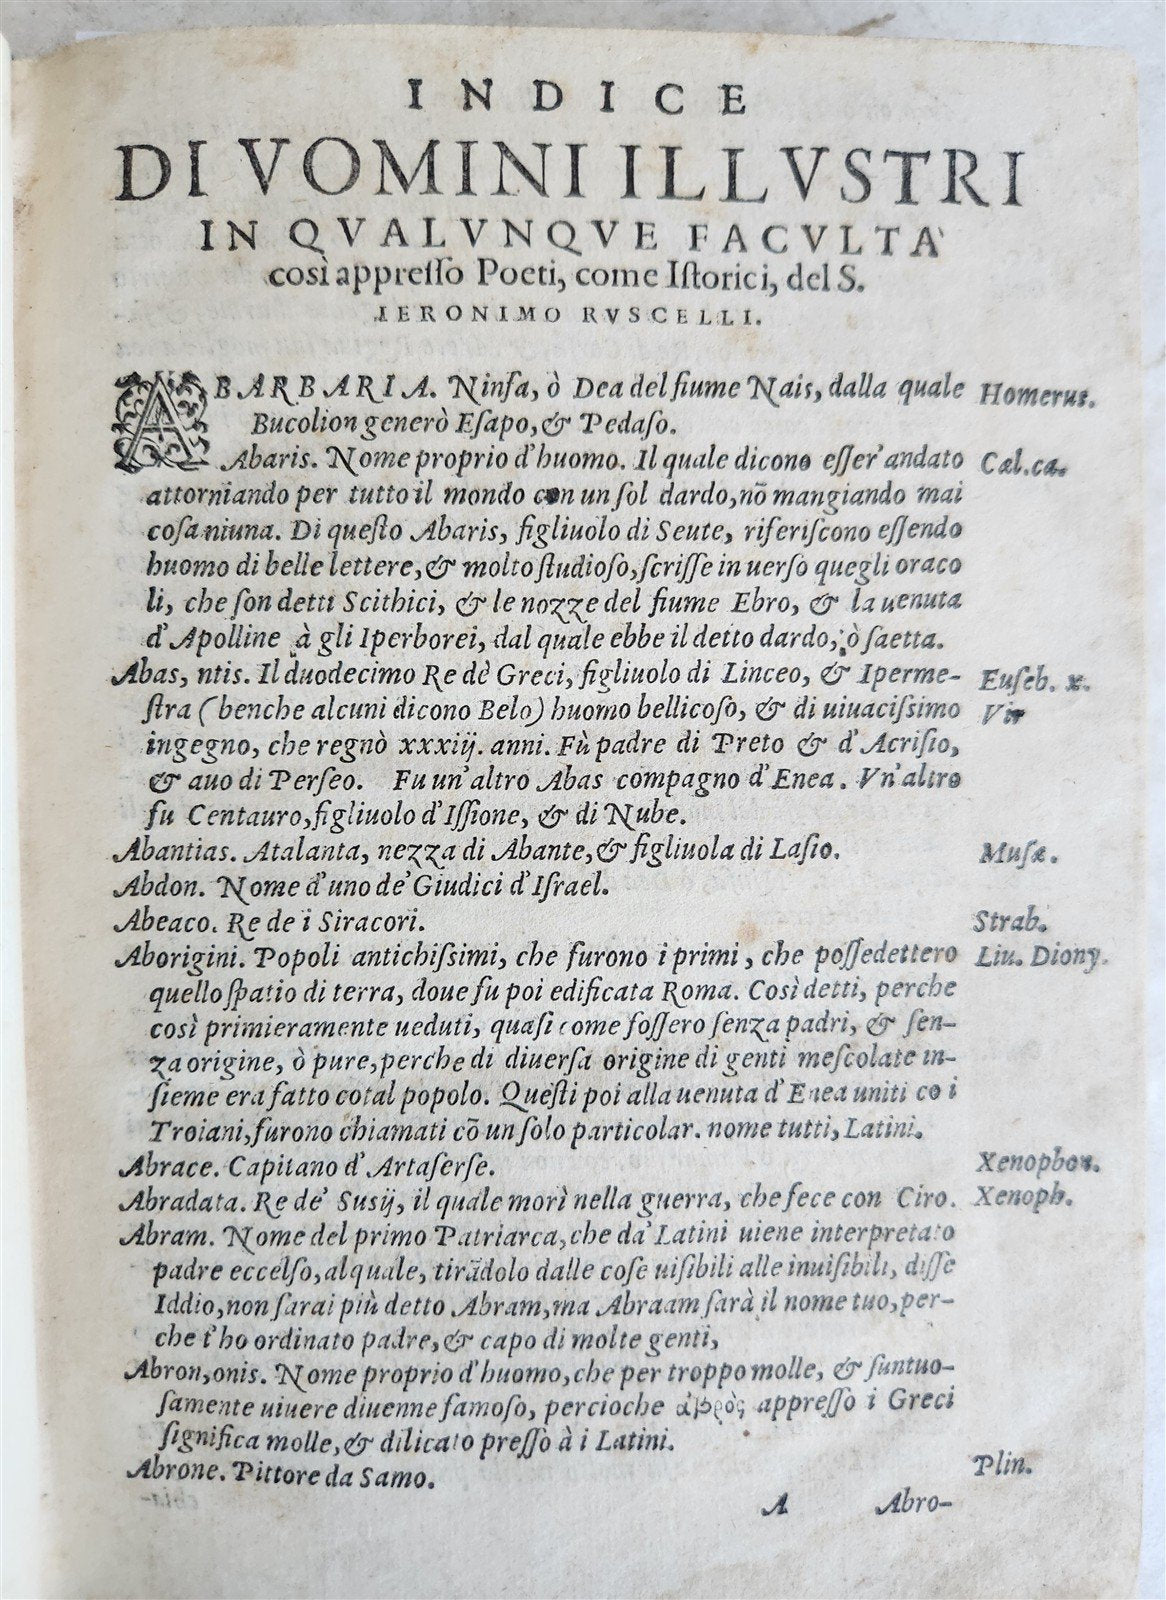 INDICE
DI VOMINI ILLVSTRI
IN QVALVNQVE FACVLTA'
così appresso Poeti, come Istorici, del S.
IERONIMO RVSCELLI.
ABARBARIA. Ninfa, ò Dea del fiume Nais, dalla quale Homerus.
Bucolion generò Esapo, & Pedaso.
Abaris. Nome proprio d'huomo. Il quale dicono esser' andato Cæl.ca.
attorniando per tutto il mondo con un sol dardo, nõ mangiando mai
cosa niuna. Di questo Abaris, figliuolo di Seute, riferiscono essendo
huomo di belle lettere, & molto studioso, scrisse in uerso quegli oraco
li, che son detti Scithici, & le nozze del fiume Ebro, & la uenuta
d'Apolline à gli Iperborei, dal quale ebbe il detto dardo, ò saetta.
Abas, ntis. Il duodecimo Re dè Greci, figliuolo di Linceo, & Iperme- Euseb. x.
stra (benche alcuni dicono Belo) huomo bellicoso, & di uiuacissimo Vir
ingegno, che regnò xxxiij. anni. Fù padre di Preto & d'Acrisio,
& auo di Perseo. Fu un'altro Abas compagno d'Enea. Vn'altro
fu Centauro, figliuolo d'Issione, & di Nube.
Abantias. Atalanta, nezza di Abante, & figliuola di Lasio. Musæ.
Abdon. Nome d'uno de' Giudici d'Israel.
Abeaco. Re de i Siracori. Strab.
Aborigini. Popoli antichissimi, che furono i primi, che possedettero Liu. Diony.
quello spatio di terra, doue fu poi edificata Roma. Così detti, perche
così primieramente ueduti, quasi come fossero senza padri, & sen-
za origine, ò pure, perche di diuersa origine di genti mescolate in-
sieme era fatto cotal popolo. Questi poi alla uenuta d'Enea uniti co i
Troiani, furono chiamati cõ un solo particolar. nome tutti, Latini.
Abrace. Capitano d'Artaserse. Xenophon.
Abradata. Re de' Susij, il quale morì nella guerra, che fece con Ciro. Xenoph.
Abram. Nome del primo Patriarca, che da' Latini uiene interpretato
padre eccelso, al quale, tirãdolo dalle cose uisibili alle inuisibili, disse
Iddio, non sarai più detto Abram, ma Abraam sarà il nome tuo, per-
che t'ho ordinato padre, & capo di molte genti,
Abron, onis. Nome proprio d'huomo, che per troppo molle, & suntuo-
samente uiuere diuenne famoso, percioche ἁβρὸς appresso i Greci
significa molle, & dilicato presso à i Latini.
Abrone. Pittore da Samo. Plin.
A Abro-